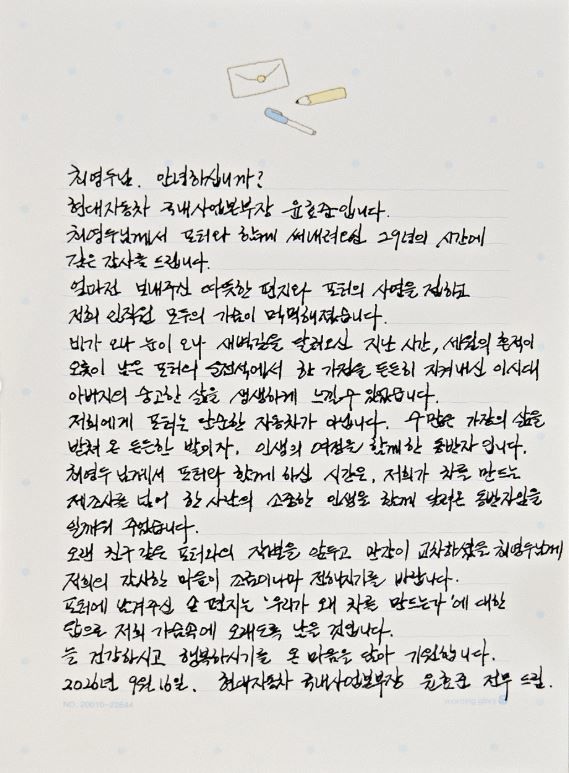 최영두님. 안녕하십니까?
현대자동차 국내사업본부장 윤효준입니다.
최영두님께서 포터와 함께 써내려오신 29년의 시간에
깊은 감사를 드립니다.
얼마전 보내주신 따뜻한 편지와 포터의 사연을 접하고
저희 임직원 모두의 가슴이 먹먹해졌습니다.
비가 오나 눈이 오나 새벽길을 달려오신 지난 시간, 세월의 흔적이
오롯이 남은 포터의 운전석에서 한 가정을 든든히 지켜내신 이시대
아버지의 숭고한 삶을 생생하게 느낄 수 있었습니다.
저희에게 포터는 단순한 자동차가 아닙니다. 수많은 가장의 삶을
받쳐 온 든든한 발이자, 인생의 여정을 함께한 동반자입니다.
최영두님께서 포터와 함께 하신 시간은, 저희가 차를 만드는
제조사를 넘어 한 사람의 소중한 인생을 함께 달려온 동반자임을
일깨워 주었습니다.
오랜 친구같은 포터와의 작별을 앞두고 만감이 교차하셨을 최영두님께
저희의 감사한 마음이 조금이나마 전해지기를 바랍니다.
포터에 남겨주신 손 편지는 '우리가 왜 차를 만드는가'에 대한
답으로 저희 가슴속에 오래도록 남을 것입니다.
늘 건강하시고 행복하시기를 온 마음을 담아 기원합니다.
2026년 9월 16일. 현대자동차 국내사업본부장 윤효준 전무 드림.
NO. 20010-22644